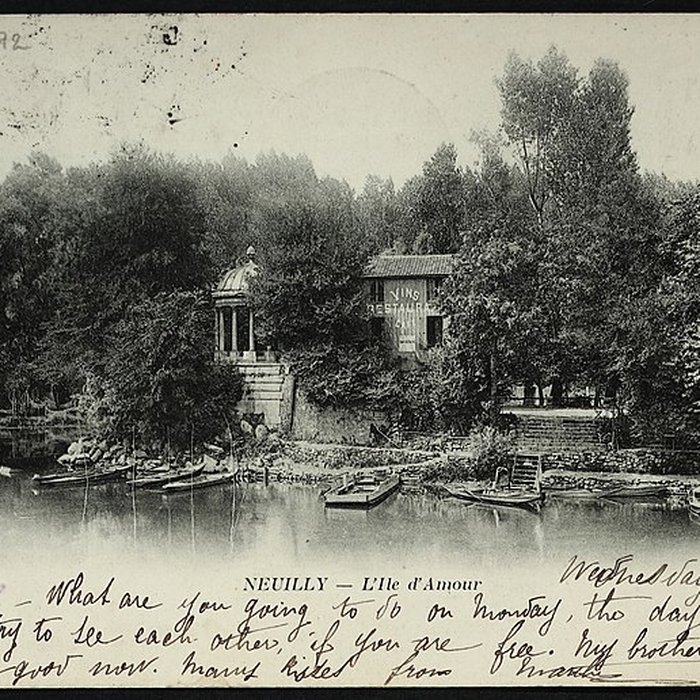 92
VINS
RESTAURA
NEUILLY — L'Ile d'Amour
Wednesday
- What are you going to do on Monday, the day
try to see each other, if you are free. My brother
good now. Many kisses from